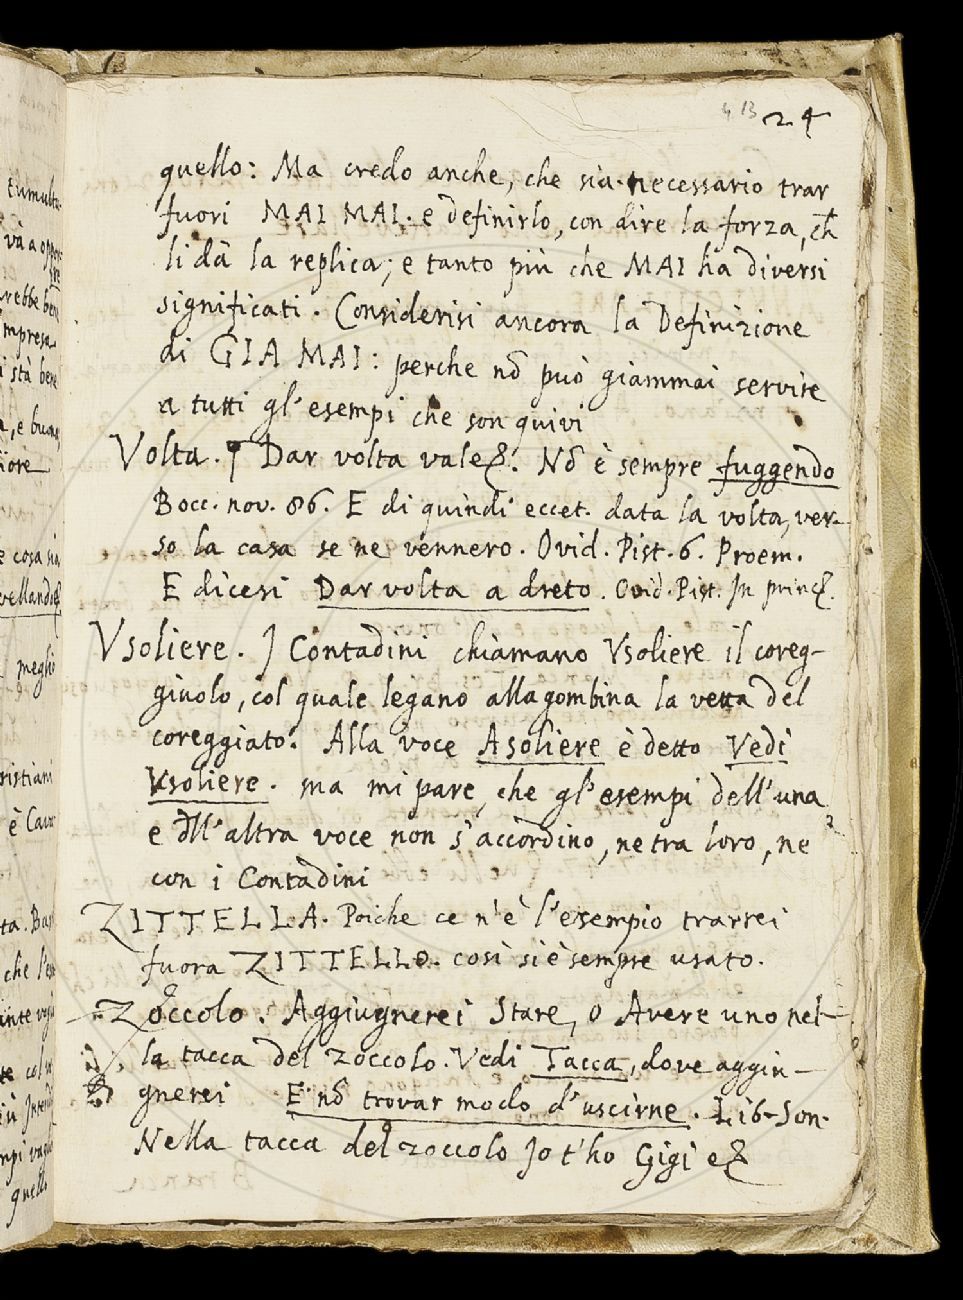 24
quello: Ma credo anche, che sia necessario trar
fuori MAI MAI. e definirlo, con dire la forza, ch̄
li dà la replica; e tanto più che MAI ha diversi
significati. Considerisi ancora la Definizione
di GIA MAI: perche nō può giammai servire
a tutti gl'esempi che son quivi
Volta. ¶ Dar volta vale &. Nō è sempre fuggendo
Bocc. nov. 86. E di quindi eccet. data la volta, ver-
so la casa se ne vennero. Ovid. Pist. 6. Proem.
E dicesi Dar volta a dreto. Ovid. Pist. In princ&.
Vsoliere. J Contadini chiamano Vsoliere il coreg-
giuolo, col quale legano alla gombina la vetta del
coreggiato. Alla voce Asoliere è detto Vedi
Vsoliere. ma mi pare, che gl'esempi dell'una
e dll'altra voce non s'accordino, ne tra loro, ne
con i Contadini
ZITTELLA. Poiche ce n'è l'esempio trarrei
fuora ZITTELLO. così si è sempre usato.
Zoccolo. Aggiugnerei Stare, o Avere uno nel-
la tacca del zoccolo. Vedi Tacca, dove aggiu-
gnerei E nō trovar modo d'uscirne. Lib. Son.
Nella tacca del zoccolo Jo t'ho Gigi e&